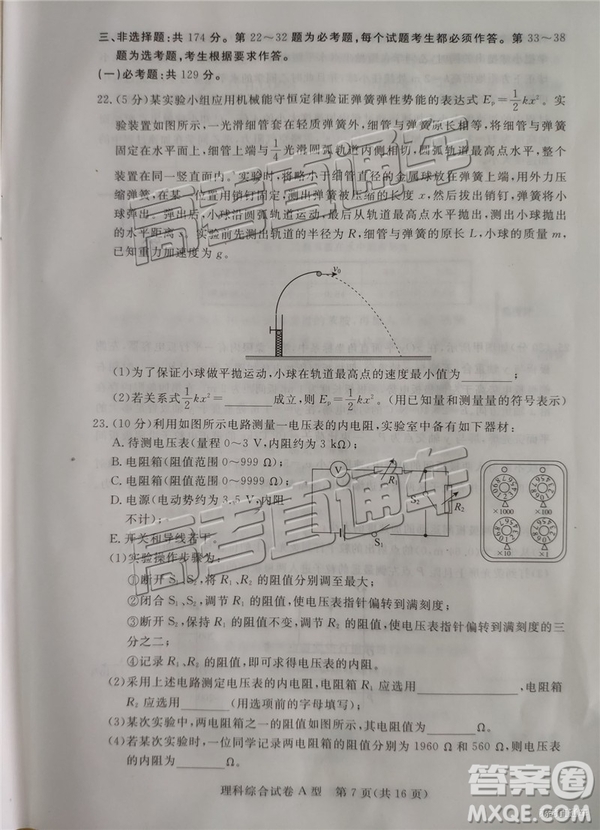 三、非选择题:共 174 分。第 22～32 题为必考题,每个试题考生都必须作答。第 33～38
题为选考题,考生根据要求作答。
(一)必考题:共 129 分。
22.(5 分)某实验小组应用机械能守恒定律验证弹簧弹性势能的表达式 Eₚ=1/2kx²。实
验装置如图所示,一光滑细管套在轻质弹簧外,细管与弹簧原长相等,将细管与弹簧
固定在水平面上,细管上端与1/4光滑圆弧轨道内径相切,圆弧轨道最高点水平,整个
装置在同一竖直面内。实验时,将略小于细管直径的小球放在细管上端,用外力压
缩弹簧,在某一位置用销钉固定,测出弹簧被压缩的长度 x,然后拔出销钉,将小
球弹出。弹出后,小球沿圆弧轨道运动,最后从轨道最高点水平抛出,测出小球水平
距离 s。实验前先测出轨道的半径为 R,细管与弹簧的原长 L,小球的质量 m,
已知重力加速度为 g。
v₀
(1)为了保证小球做平抛运动,小球在轨道最高点的速度最小值为
(2)若关系式1/2kx²= 成立,则 Eₚ=1/2kx²。(用已知量和测量量的符号表示)
23.(10 分)利用如图所示电路测量一电压表的内电阻,实验室中备有如下器材:
A. 待测电压表(量程 0～3 V,内阻约为 3 kΩ)
B. 电阻箱(阻值范围 0～999 Ω)
C. 电阻箱(阻值范围 0～9999 Ω)
D. 电源(电动势约为 3.5 V,内阻
不计)
E. 开关和导线若干。
V
R₁
S₂
R₂
S₁
×1000
×100
×10
×1
(1)实验操作步骤为:
①断开 S₁、S₂,将 R₁、R₂ 的阻值分别调至最大;
②闭合 S₁、S₂,调节 R₁ 的阻值,使电压表指针偏转到满刻度;
③断开 S₂,保持 R₁ 的阻值不变,调节 R₂ 的阻值,使电压表指针偏转到满刻度的三
分之二;
④记录 R₁、R₂ 的阻值,即可得出电压表的内阻。
(2)采用上述电路测定电压表的内电阻,电阻箱 R₁ 应选用 ,电阻箱
R₂ 应选用 (用选项前的字母填写)
(3)某次实验中,两电阻箱之一的阻值如图所示,其大小为 Ω。
(4)若某次实验时,一位同学记录两电阻箱的阻值分别为 1960 Ω 和 560 Ω,则电压
表的内阻为 Ω。
理科综合试卷 A 型 第 7 页(共 16 页)
高考直通车
高考直通车
高考直通车
答案圈